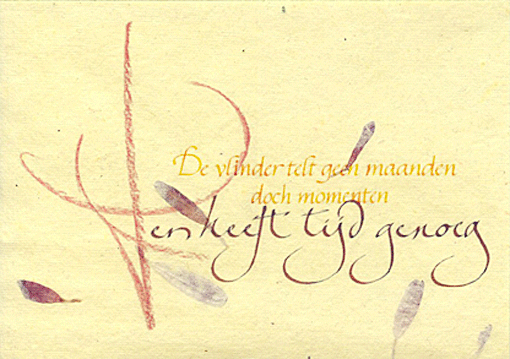 De vlinder telt geen maanden
doch momenten
en heeft tijd genoeg